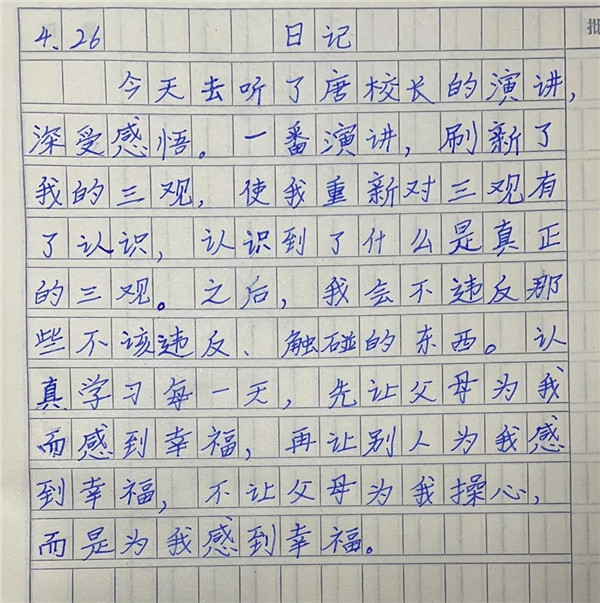 4.26 日记
批
今天去听了唐校长的演讲,
深受感悟。一番演讲,刷新了
我的三观,使我重新对三观有
了认识,认识到了什么是真正
的三观。之后,我会不违反那
些不该违反、触碰的东西。认
真学习每一天,先让父母为我
而感到幸福,再让别人为我感
到幸福,不让父母为我操心,
而是为我感到幸福。